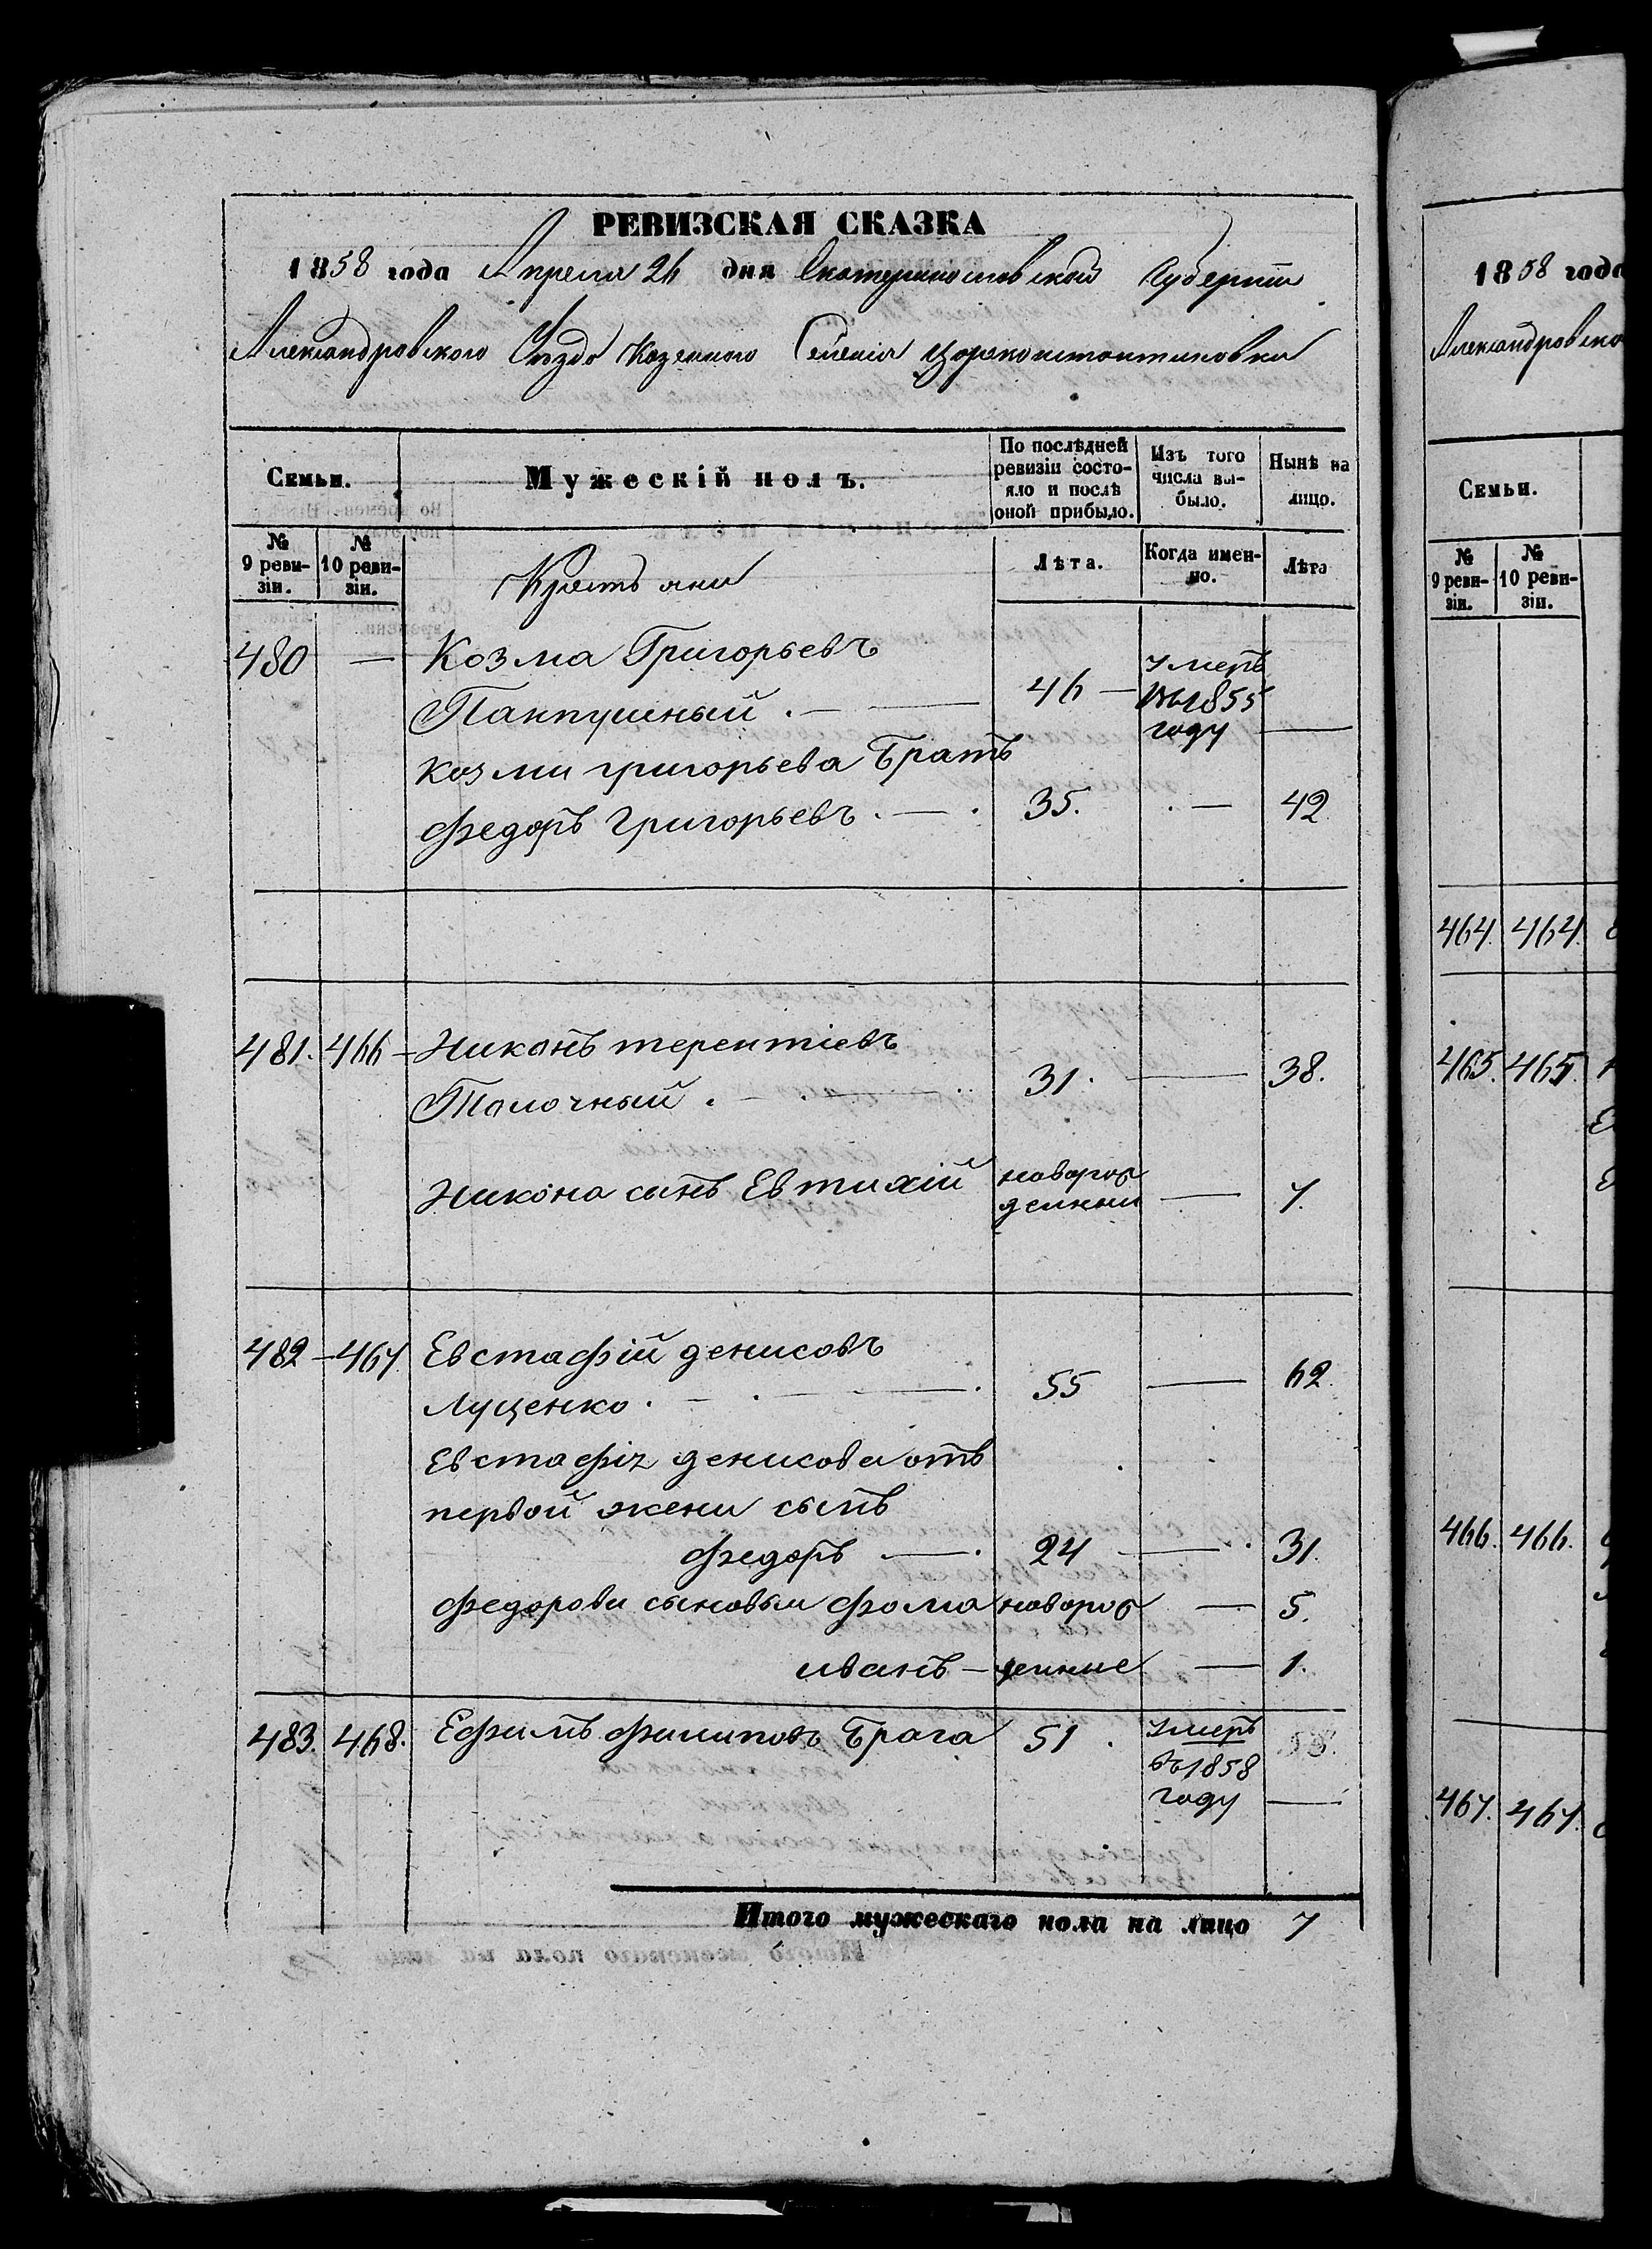 РЕВИЗСКАЯ СКАЗКА
1858 года Апреля 26 дня Екатеринославской Губернии
Александровского Уезда Казенного Селенія Цареконстантиновки
Семьи.
Мужескій полъ.
По послѣдней ревизіи состояло и послѣ оной прибыло.
Изъ того числа выбыло.
Нынѣ на лицо.
№ 9 ревизіи.
№ 10 ревизіи.
Крестьяни
Лѣта.
Когда именно.
Лѣта
480 — Козма Григорьевъ
Панпушный . — 46 — умеръ въ 1855 году —
Козми григорьева Братъ
Федоръ Григорьевъ . — . 35. . — 42
481. 466 — Никонъ терентіевъ
Толочный . — 31. — 38.
Никона сынъ Евтихій новорожденни — 7.
482 — 467 Евстафій денисовъ
Луценко . — . 55 — 62.
Евстафія денисова отъ
первой жени сынъ
Федоръ — . 24 — . 31.
Федорови сыновьи Фома новорож — 5.
иванъ — денные — 1.
483. 468. Ефимъ Филиповъ Брага 51. умеръ въ 1858 году —
Итого мужескаго пола на лицо 7
1858 года
Александровско
Семьи.
№ 9 ревизіи.
№ 10 ревизіи.
464. 464.
465. 465.
466. 466.
467. 467.